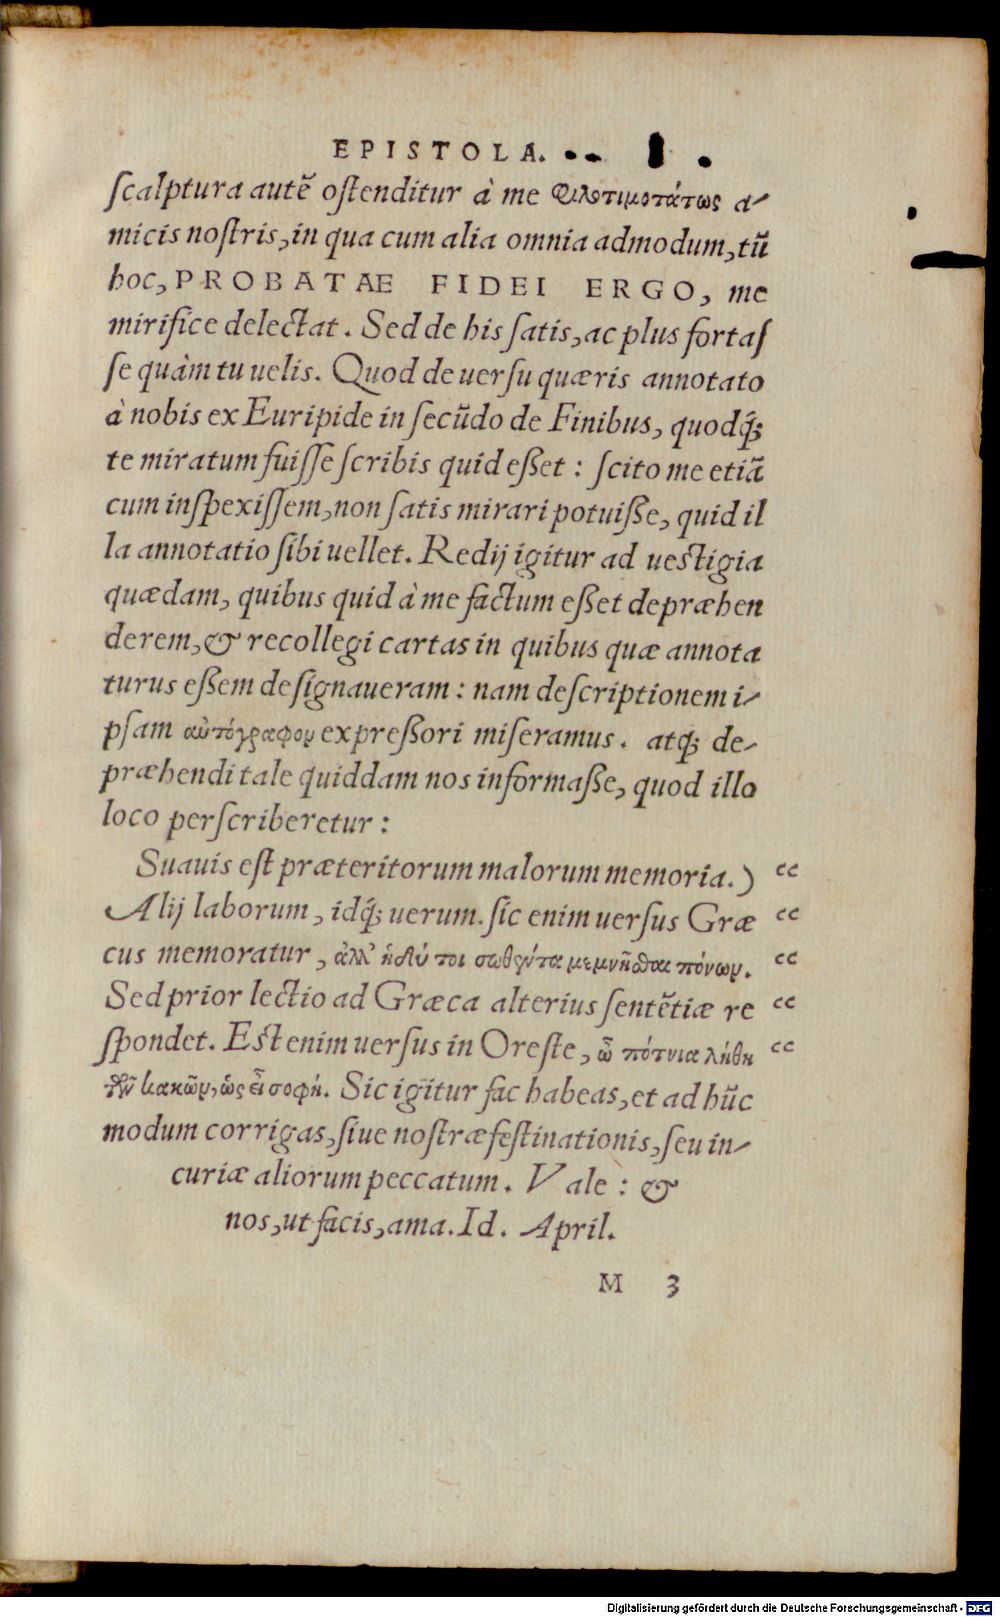 EPISTOLA.
ſcalptura autē oſtenditur à me Φιλοτιμοτάτως a-
micis noſtris, in qua cum alia omnia admodum, tū
hoc, PROBATAE FIDEI ERGO, me
mirifice delectat. Sed de his ſatis, ac plus fortaſ
ſe quàm tu uelis. Quod de uerſu quæris annotato
à nobis ex Euripide in ſecūdo de Finibus, quodq́;
te miratum fuiſſe ſcribis quid eßet : ſcito me etiā
cum inſpexiſſem, non ſatis mirari potuiße, quid il
la annotatio ſibi uellet. Redij igitur ad ueſtigia
quædam, quibus quid à me factum eßet depræhen
derem, & recollegi cartas in quibus quæ annota
turus eßem deſignaueram : nam deſcriptionem i-
pſam αὐτόγραφον expreßori miſeramus. atq́; de-
præhendi tale quiddam nos informaße, quod illo
loco perſcriberetur :
Suauis eſt præteritorum malorum memoria.) cc
Alij laborum, idq́; uerum. ſic enim uerſus Græ cc
cus memoratur, ἀλλ' ἡδύ τοι σωθέντα μεμνῆσθαι πόνων. cc
Sed prior lectio ad Græca alterius ſentētiæ re cc
ſpondet. Eſt enim uerſus in Oreſte, ὦ πότνια λήθη cc
τῶν κακῶν, ὡς εἶ σοφή. Sic igitur fac habeas, et ad hūc
modum corrigas, ſiue noſtræ feſtinationis, ſeu in-
curiæ aliorum peccatum. Vale : &
nos, ut facis, ama. Id. April.
M 3
Digitalisierung gefördert durch die Deutsche Forschungsgemeinschaft - DFG